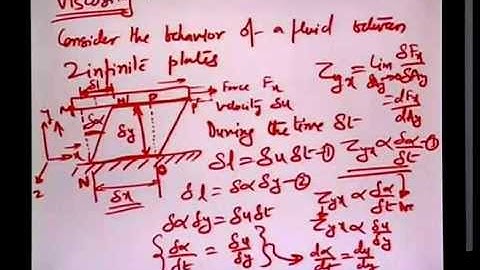 Viscosity
Consider the behavior of a fluid between
2 infinite plates
δl
M M' P P'
Force Fx
velocity δu
δα
δy
y
x
z
N O
δx
τyx = Lim δAy→0 δFx/δAy
= dFx/dAy
During the time δt
δl = δu δt —①
δl = δα δy —②
δα δy = δu δt
{ δα/δt = δu/δy }
τyx ∝ δα/δt —①
τyx ∝ δα/δt
τyx ∝ δu/δy
dα/dt = du/dy